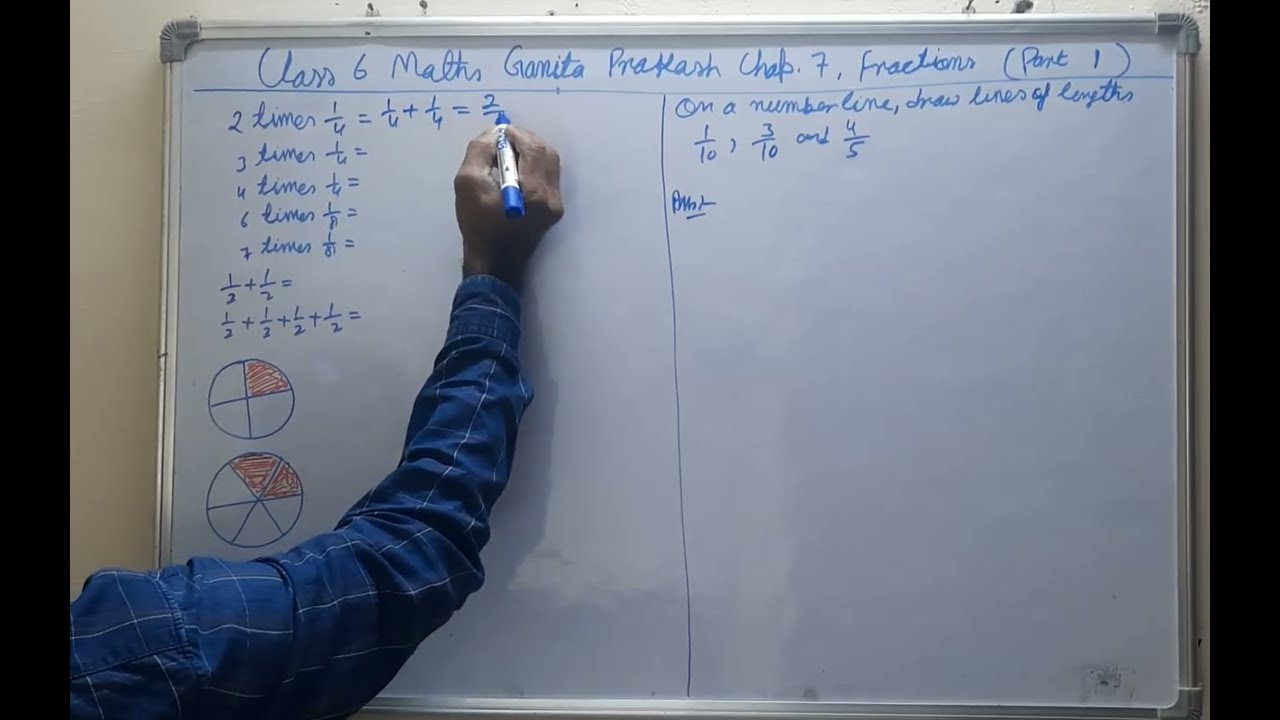 Class 6 Maths Ganita Prakash Chap. 7, Fractions (Part 1)
2 times 1/4 = 1/4 + 1/4 = 2/
3 times 1/4 =
4 times 1/4 =
6 times 1/8 =
7 times 1/8 =
1/2 + 1/2 =
1/2 + 1/2 + 1/2 + 1/2 =
On a number line, draw lines of lengths
1/10, 3/10 and 4/5
Ans:-